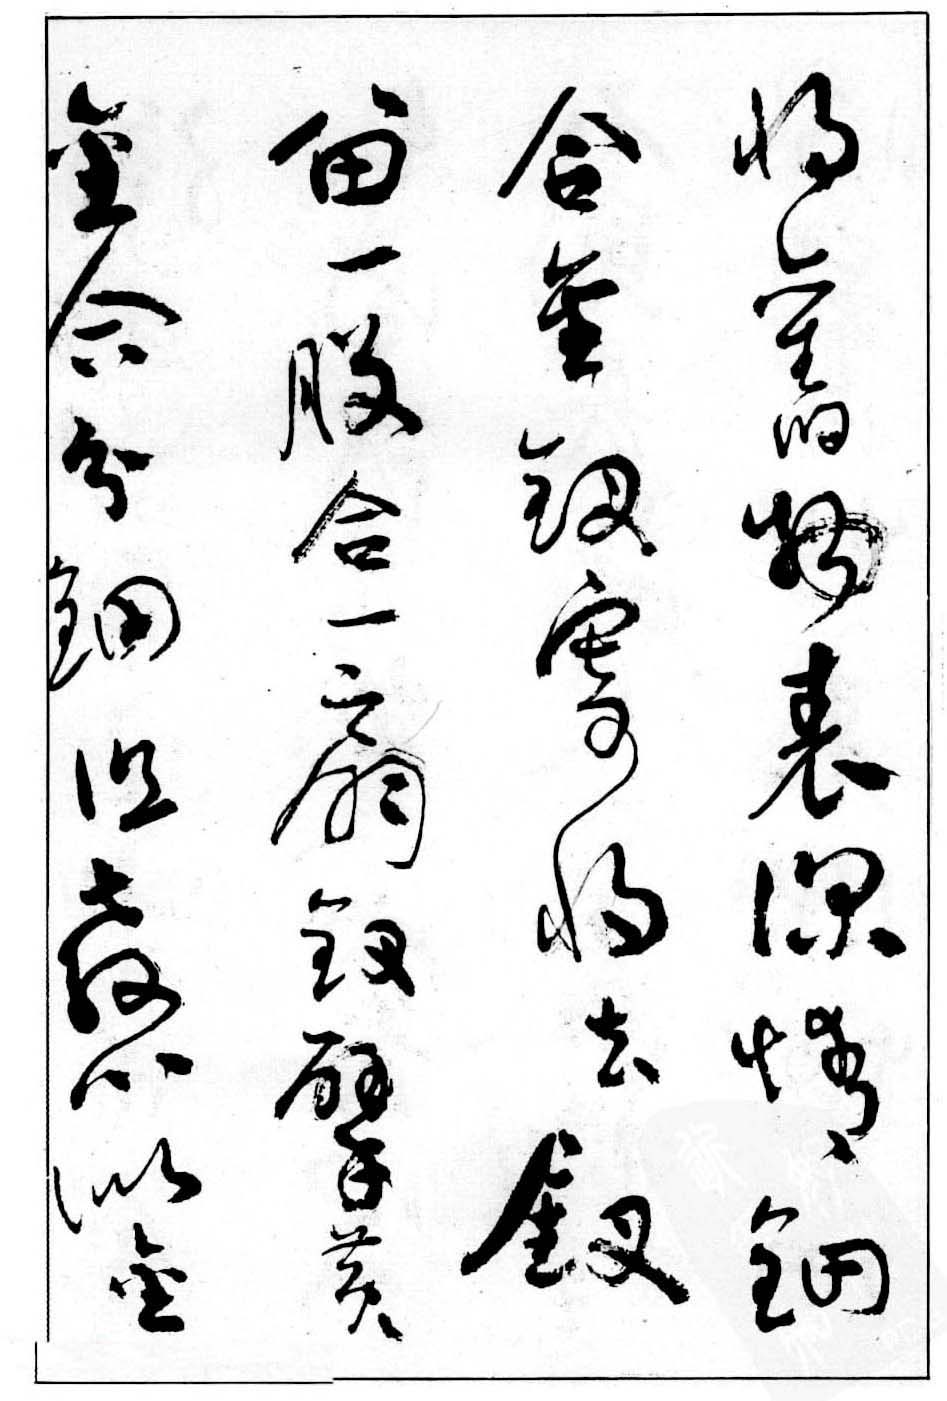 將舊物表深情鈿
合金釵寄將去釵
留一股合一扇釵擘黃
金合分鈿但教心似金